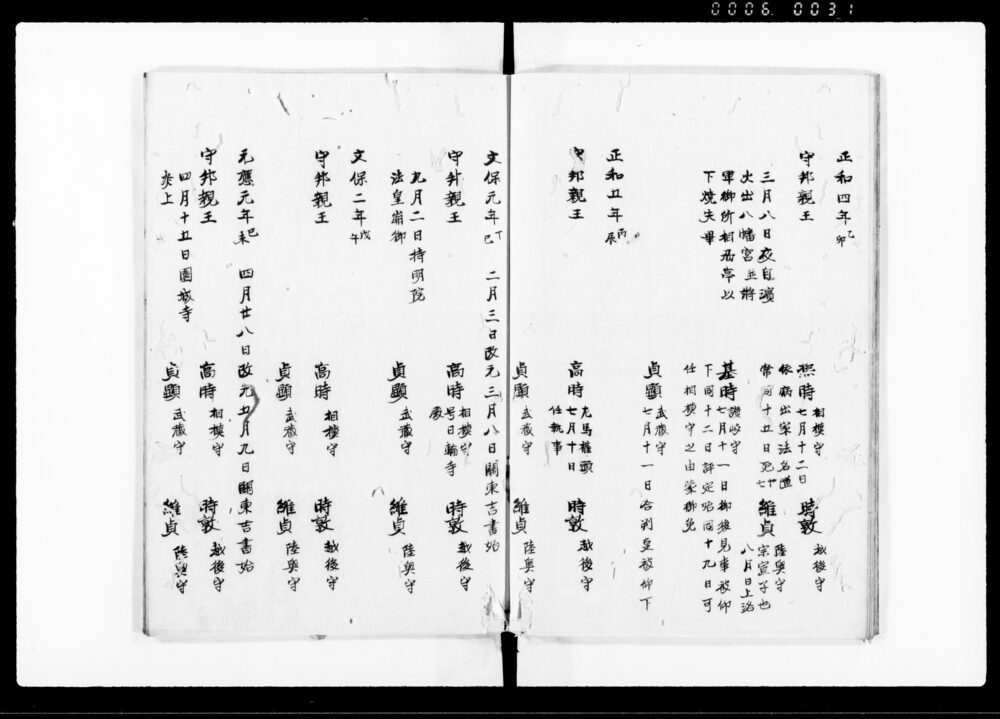 0006 0031
正和四年乙卯
守邦親王
三月八日夜自濱
火出八幡宮並將
軍御所相州亭以
下焼失畢
煕時 相模守
七月十二日
依病出家法名道
常同十五日死七
基時 讃岐守
七月十一日御後見事被仰
下同十二日評定始同十九日可
任相模守之由蒙御免
貞顕 武蔵守
七月十一日合判事被仰下
時敦 越後守
維貞 陸奥守
宗宣子也
八月日上洛
正和五年丙辰
守邦親王
高時 左馬権頭
七月十日
任執事
貞顕 武蔵守
時敦 越後守
維貞 陸奥守
文保元年丁巳 二月三日改元三月八日關東吉書始
守邦親王
九月二日持明院
法皇崩御
高時 相模守
号日輪寺
殿
貞顕 武蔵守
時敦 越後守
維貞 陸奥守
文保二年戊午
守邦親王
高時 相模守
貞顕 武蔵守
時敦 越後守
維貞 陸奥守
元應元年己未 四月廿八日改元五月九日關東吉書始
守邦親王
四月十五日園城寺
炎上
高時 相模守
貞顕 武蔵守
時敦 越後守
維貞 陸奥守